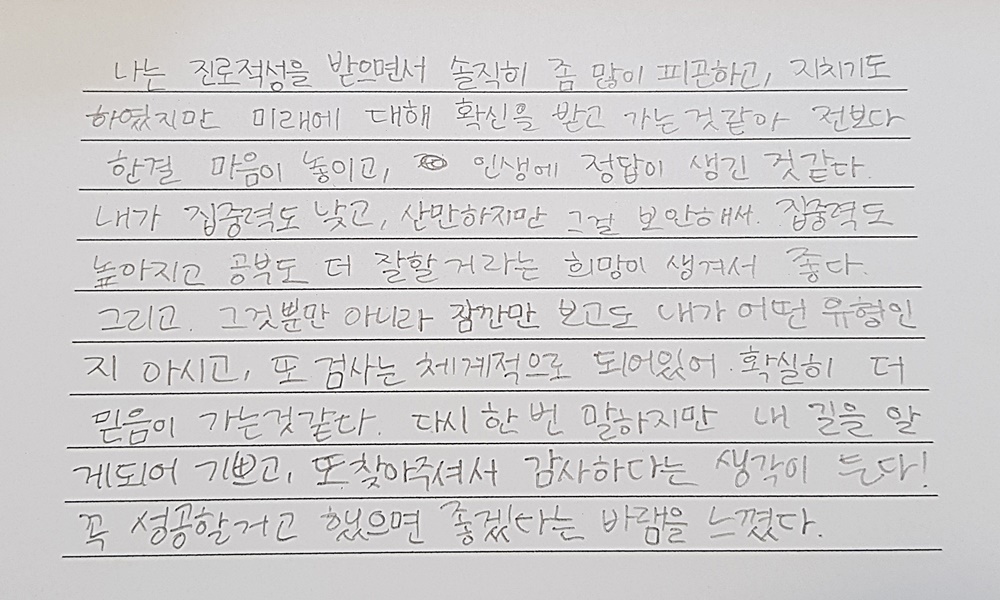 나는 진로적성을 받으면서 솔직히 좀 많이 피곤하고, 지치기도
하였지만 미래에 대해 확신을 받고 가는것같아 전보다
한결 마음이 놓이고, 인생에 정답이 생긴 것같다.
내가 집중력도 낮고, 산만하지만 그걸 보안해서. 집중력도
높아지고 공부도 더 잘할거라는 희망이 생겨서 좋다.
그리고. 그것뿐만 아니라 잠깐만 보고도 내가 어떤 유형인
지 아시고, 또 검사는 체계적으로 되어있어. 확실히 더
믿음이 가는것같다. 다시 한 번 말하지만 내 길을 알
게되어 기쁘고, 또.찾아주셔서 감사하다는 생각이 든다!
꼭 성공할거고 했으면 좋겠다는 바램을 느꼈다.